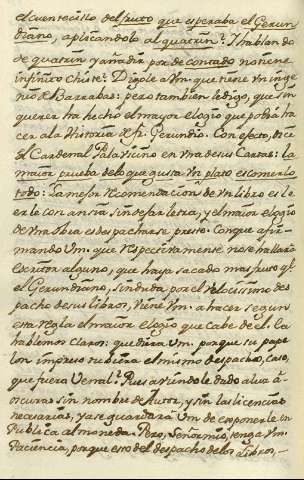 el cuentecillo del fruto que esperaba el Gerun-
diano, aplicandolo al quatrin? I hablando
de quatrin y añadir por de contado no tiene
infinito chiste. Digole a Vm. que tiene Vn inge-
nio de Barrabas: pero tambien le digo, que sin
querer ha hecho el mayor elogio que podia ha
cer a la Historia de fr. Gerundio. Con efecto, dice
el Cardenal Palavicino en Vna de sus Cartas: la
maior prueba de lo que gusta Vn plato es comerlo
todo: la mejor recomendacion de Vn libro es le
erle con ansia sin dejar letra, y el maior elogio
de Vna obra es despacharse presto. Conque afir-
mando Vm. que respectivamente no se hallara
Escritor alguno, que haya sacado mas fruto q.e
el Gerundiano, sin duda por el velocissimo des
pacho de sus libros, viene Vm. a hacer segun
esta regla el maior elogio que cabe de el. Ca
hablemos claros: que diera Vm. porque su pape
lon impreso tubiera el mismo despacho, caso,
que fuera Venal? Pues aviendole dado a luz á
oscuras sin nombre de Autor, y sin las licencias
necesarias, ya se guardará Vm. de exponerle en
Publica almoneda. Pero, Señor mio, tenga Vm.
Paciencia, porque esto del despacho de los Libros,